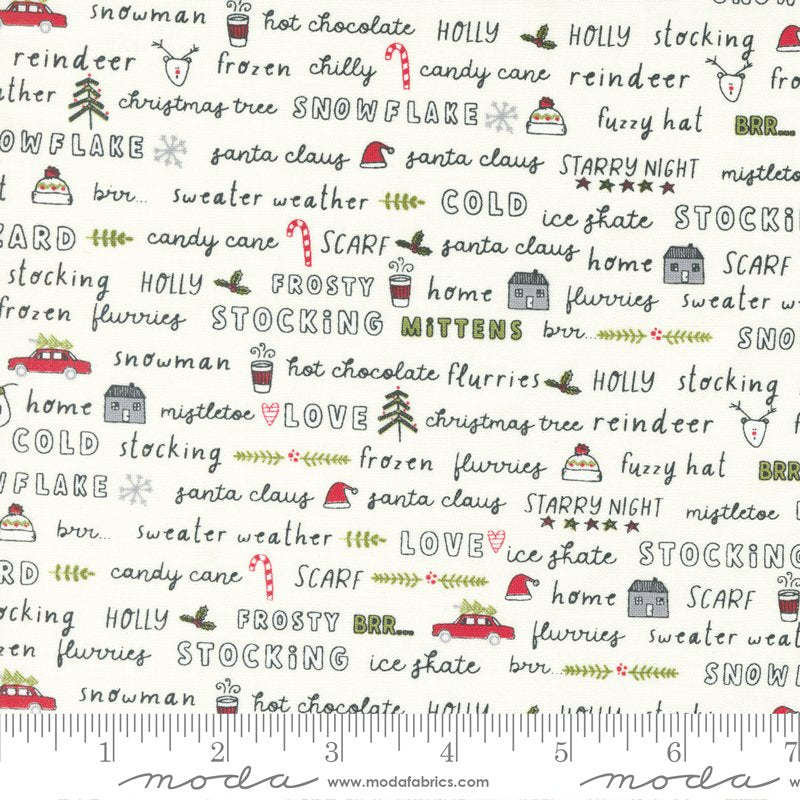 SNOW
snowman hot chocolate HOLLY HOLLY stocking
reindeer frozen chilly candy cane reindeer fro
ther christmas tree SNOWFLAKE fuzzy hat BRR...
OWFLAKE santa claus santa claus STARRY NIGHT mistletoe
t brr... sweater weather COLD ice skate STOCKI
ZARD candy cane SCARF santa claus home SCARF
stocking HOLLY FROSTY home flurries sweater w
frozen flurries STOCKING MITTENS brr... SNO
snowman hot chocolate flurries HOLLY stocking
home mistletoe LOVE christmas tree reindeer f
COLD stocking frozen flurries fuzzy hat BRR
WFLAKE santa claus santa claus STARRY NIGHT mistletoe
brr... sweater weather LOVE ice skate STOCKING
RD candy cane SCARF home SCARF
ocking HOLLY FROSTY BRR... flurries sweater weat
zen flurries STOCKING ice skate brr... SNOWF
snowman hot chocolate HOLLY HOLLY
1 2 3 4 5 6 7
moda www.modafabrics.com moda w